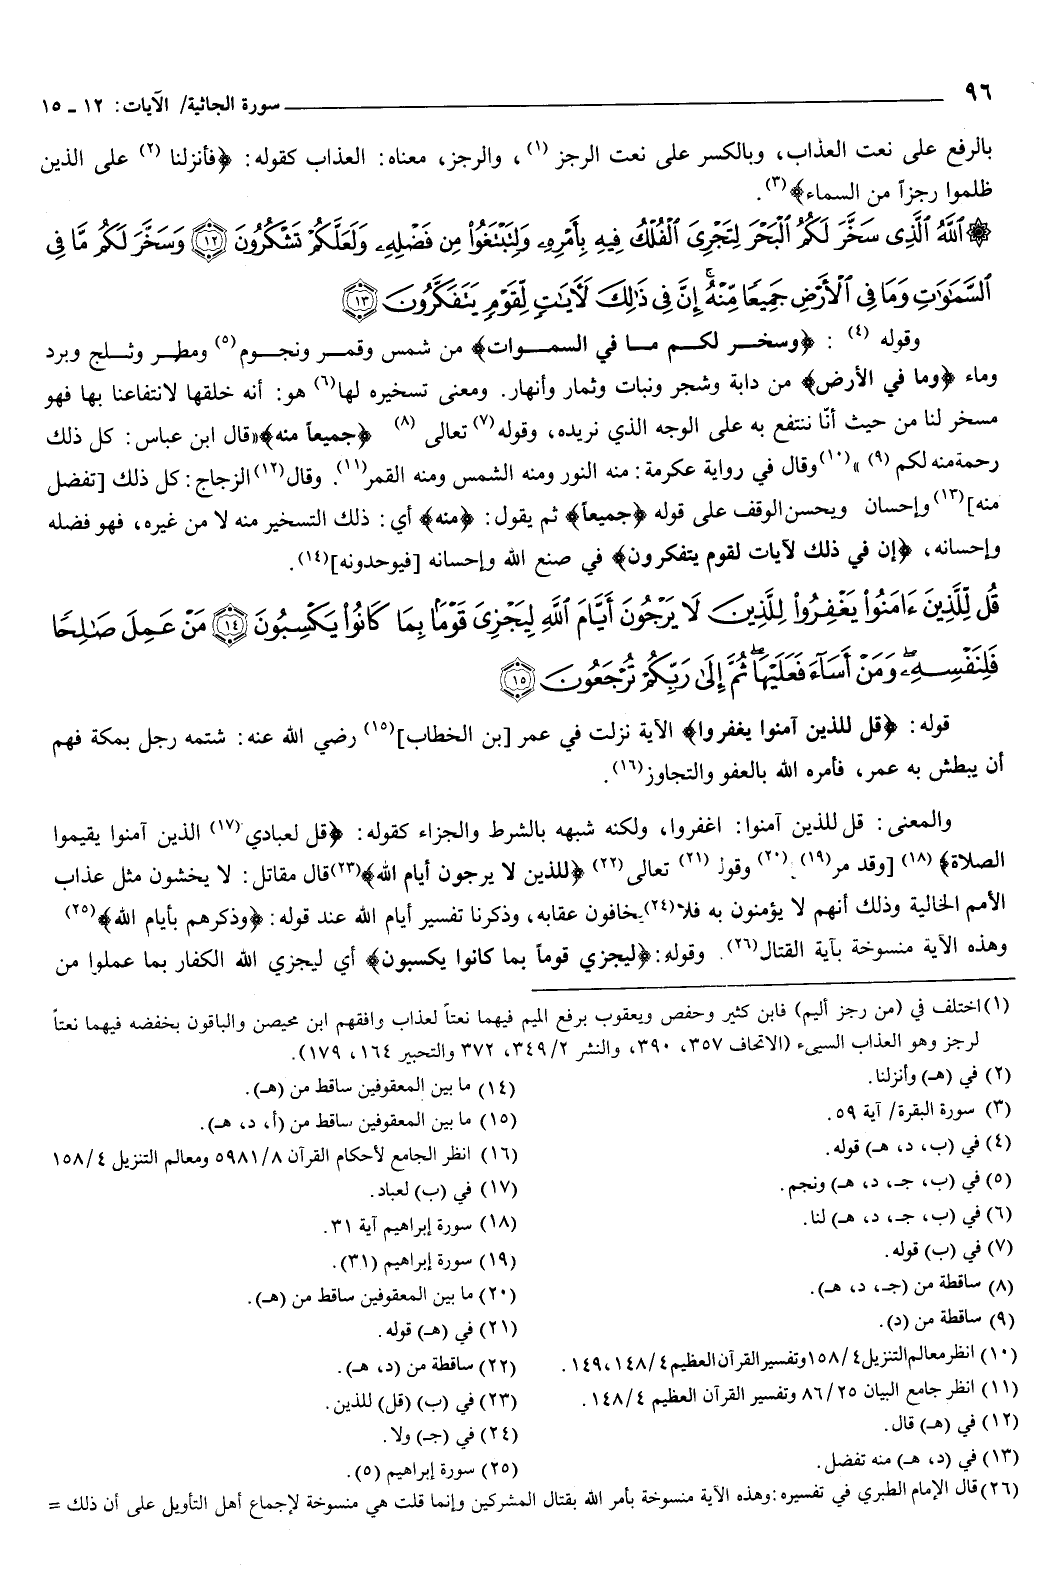 ٩٦ سورة الجاثية/ الآيات: ١٢ ـ ١٥
بالرفع على نعت العذاب، وبالكسر على نعت الرجز (١)، والرجز، معناه: العذاب كقوله: ﴿فأنزلنا (٢) على الذين
ظلموا رجزاً من السماء﴾(٣).
۞ ٱللَّهُ ٱلَّذِى سَخَّرَ لَكُمُ ٱلْبَحْرَ لِتَجْرِىَ ٱلْفُلْكُ فِيهِ بِأَمْرِهِۦ وَلِتَبْتَغُوا۟ مِن فَضْلِهِۦ وَلَعَلَّكُمْ تَشْكُرُونَ ﴿١٢﴾ وَسَخَّرَ لَكُم مَّا فِى
ٱلسَّمَٰوَٰتِ وَمَا فِى ٱلْأَرْضِ جَمِيعًا مِّنْهُ ۚ إِنَّ فِى ذَٰلِكَ لَـَٔايَٰتٍ لِّقَوْمٍ يَتَفَكَّرُونَ ﴿١٣﴾
وقوله (٤) : ﴿وسخر لكم ما في السموات﴾ من شمس وقمر ونجوم(٥) ومطر وثلج وبرد
وماء ﴿وما في الأرض﴾ من دابة وشجر ونبات وثمار وأنهار. ومعنى تسخيره لها(٦) هو: أنه خلقها لانتفاعنا بها فهو
مسخر لنا من حيث أنّا ننتفع به على الوجه الذي نريده، وقوله(٧) تعالى (٨) ﴿جميعاً منه﴾«قال ابن عباس: كل ذلك
رحمة منه لكم (٩) »(١٠) وقال في رواية عكرمة: منه النور ومنه الشمس ومنه القمر(١١). وقال(١٢) الزجاج: كل ذلك [تفضل
منه](١٣) وإحسان ويحسن الوقف على قوله ﴿جميعاً﴾ ثم يقول: ﴿منه﴾ أي: ذلك التسخير منه لا من غيره، فهو فضله
وإحسانه، ﴿إن في ذلك لآيات لقوم يتفكرون﴾ في صنع الله وإحسانه [فيوحدونه](١٤).
قُل لِّلَّذِينَ ءَامَنُوا۟ يَغْفِرُوا۟ لِلَّذِينَ لَا يَرْجُونَ أَيَّامَ ٱللَّهِ لِيَجْزِىَ قَوْمًۢا بِمَا كَانُوا۟ يَكْسِبُونَ ﴿١٤﴾ مَنْ عَمِلَ صَٰلِحًا
فَلِنَفْسِهِۦ ۖ وَمَنْ أَسَآءَ فَعَلَيْهَا ۖ ثُمَّ إِلَىٰ رَبِّكُمْ تُرْجَعُونَ ﴿١٥﴾
قوله: ﴿قل للذين آمنوا يغفروا﴾ الآية نزلت في عمر [بن الخطاب](١٥) رضي الله عنه: شتمه رجل بمكة فهم
أن يبطش به عمر، فأمره الله بالعفو والتجاوز(١٦).
والمعنى: قل للذين آمنوا: اغفروا، ولكنه شبهه بالشرط والجزاء كقوله: ﴿قل لعبادي(١٧) الذين آمنوا يقيموا
الصلاة﴾ (١٨) [وقد مر(١٩) ](٢٠) وقوله (٢١) تعالى (٢٢) ﴿للذين لا يرجون أيام الله﴾(٢٣) قال مقاتل: لا يخشون مثل عذاب
الأمم الخالية وذلك أنهم لا يؤمنون به فلا(٢٤) يخافون عقابه، وذكرنا تفسير أيام الله عند قوله: ﴿وذكرهم بأيام الله﴾(٢٥)
وهذه الآية منسوخة بآية القتال(٢٦). وقوله: ﴿ليجزي قوماً بما كانوا يكسبون﴾ أي ليجزي الله الكفار بما عملوا من
(١) اختلف في (من رجز أليم) فابن كثير وحفص ويعقوب برفع الميم فيهما نعتاً لعذاب وافقهم ابن محيصن والباقون بخفضه فيهما نعتاً
لرجز وهو العذاب السيىء (الاتحاف ٣٥٧، ٣٩٠، والنشر ٣٤٩/٢، ٣٧٢ والتحبير ١٦٤، ١٧٩).
(٢) في (هـ) وأنزلنا.
(٣) سورة البقرة/ آية ٥٩.
(٤) في (ب، د، هـ) قوله.
(٥) في (ب، جـ، د، هـ) ونجم.
(٦) في (ب، جـ، د، هـ) لنا.
(٧) في (ب) قوله.
(٨) ساقطة من (جـ، د، هـ).
(٩) ساقطة من (د).
(١٠) انظر معالم التنزيل ١٥٨/٤ وتفسير القرآن العظيم ١٤٨/٤، ١٤٩.
(١١) انظر جامع البيان ٨٦/٢٥ وتفسير القرآن العظيم ١٤٨/٤.
(١٢) في (هـ) قال.
(١٣) في (د، هـ) منه تفضل.
(١٤) ما بين المعقوفين ساقط من (هـ).
(١٥) ما بين المعقوفين ساقط من (أ، د، هـ).
(١٦) انظر الجامع لأحكام القرآن ٥٩٨١/٨ ومعالم التنزيل ١٥٨/٤
(١٧) في (ب) لعباد.
(١٨) سورة إبراهيم آية ٣١.
(١٩) سورة إبراهيم (٣١).
(٢٠) ما بين المعقوفين ساقط من (هـ).
(٢١) في (هـ) قوله.
(٢٢) ساقطة من (د، هـ).
(٢٣) في (ب) (قل) للذين.
(٢٤) في (جـ) ولا.
(٢٥) سورة إبراهيم (٥).
(٢٦) قال الإمام الطبري في تفسيره: وهذه الآية منسوخة بأمر الله بقتال المشركين وإنما قلت هي منسوخة لإجماع أهل التأويل على أن ذلك =